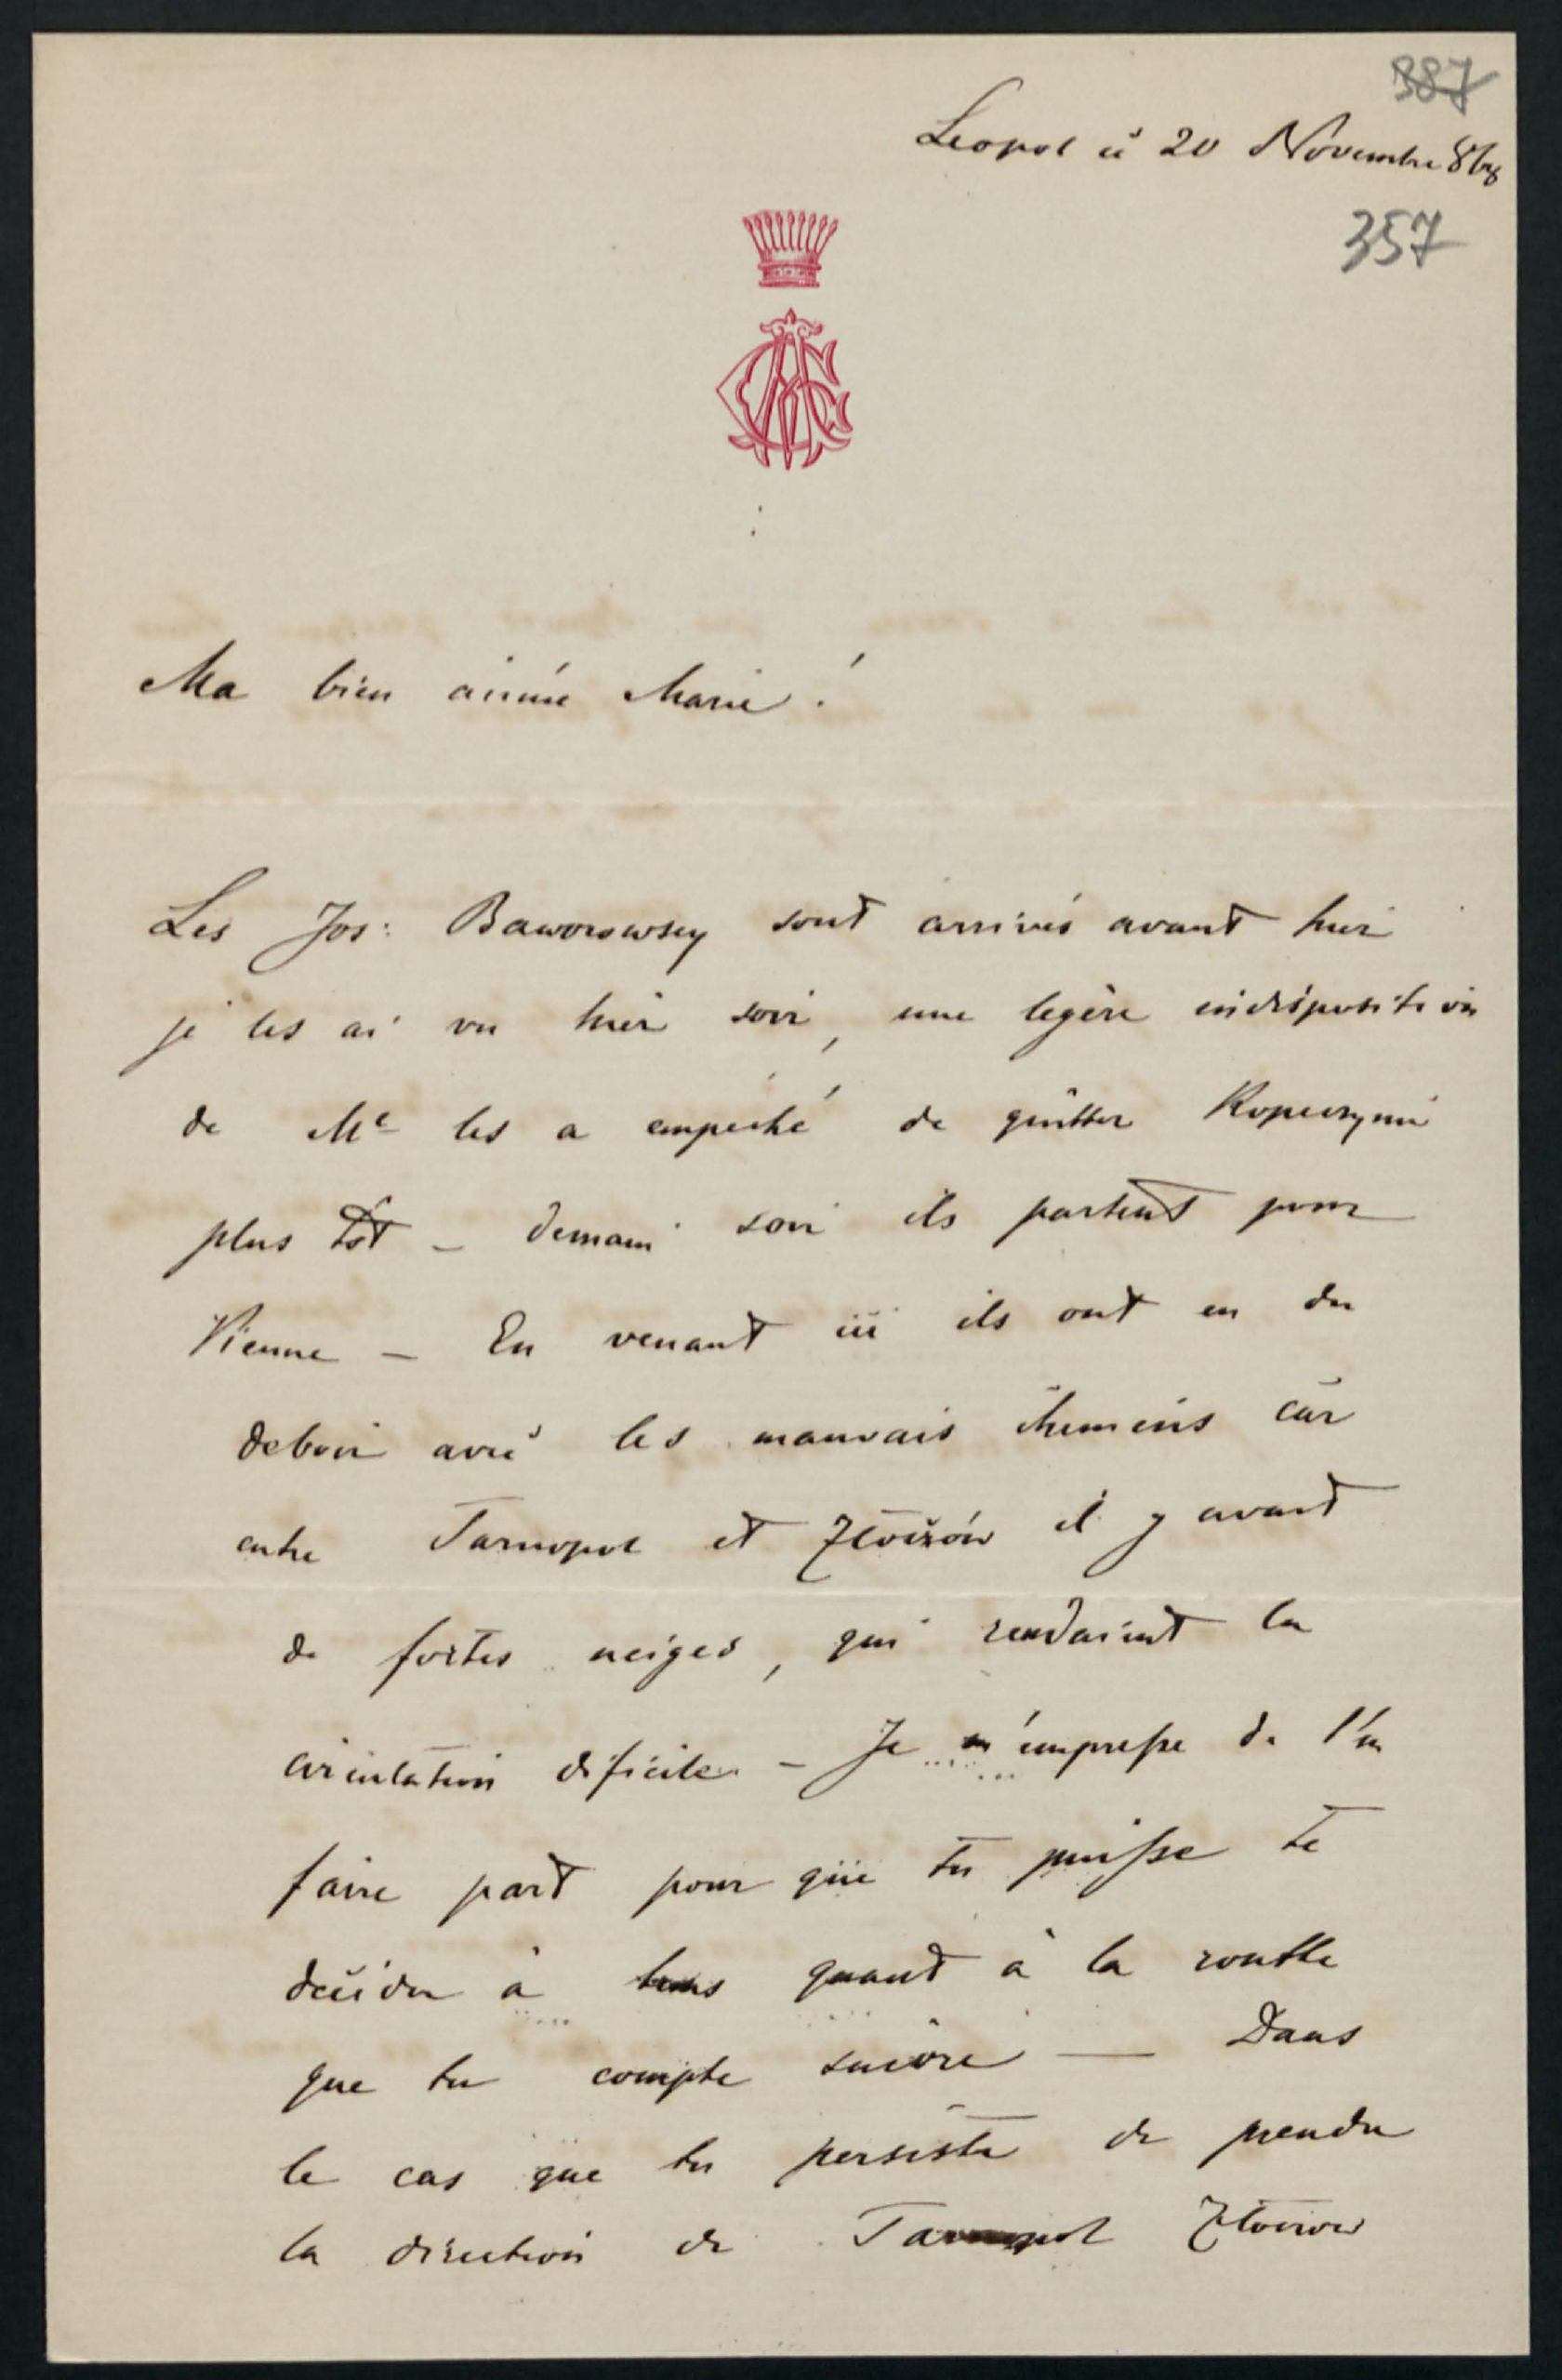 387
Leopol ce 20 Novembre 868
357
Ma bien aimée Marie !
Les Jos: Baworowscy sont arrivés avant hier
je les ai vu hier soir, une legère indisposition
de Me les a empeché de quitter Kopeczynce
plus tôt – demain soir ils partent pour
Vienne – En venant ici ils ont eu du
deboir avec les mauvais chemins car
entre Tarnopol et Złoczów il y avait
de fortes neiges, qui rendaient la
circulation dificile – Je m'empresse de t'en
faire part pour que tu puisse te
décider à tems quant à la routte
que tu compte suivre — Dans
le cas que tu persiste de prendre
la direction de Tarnopol Złoczow